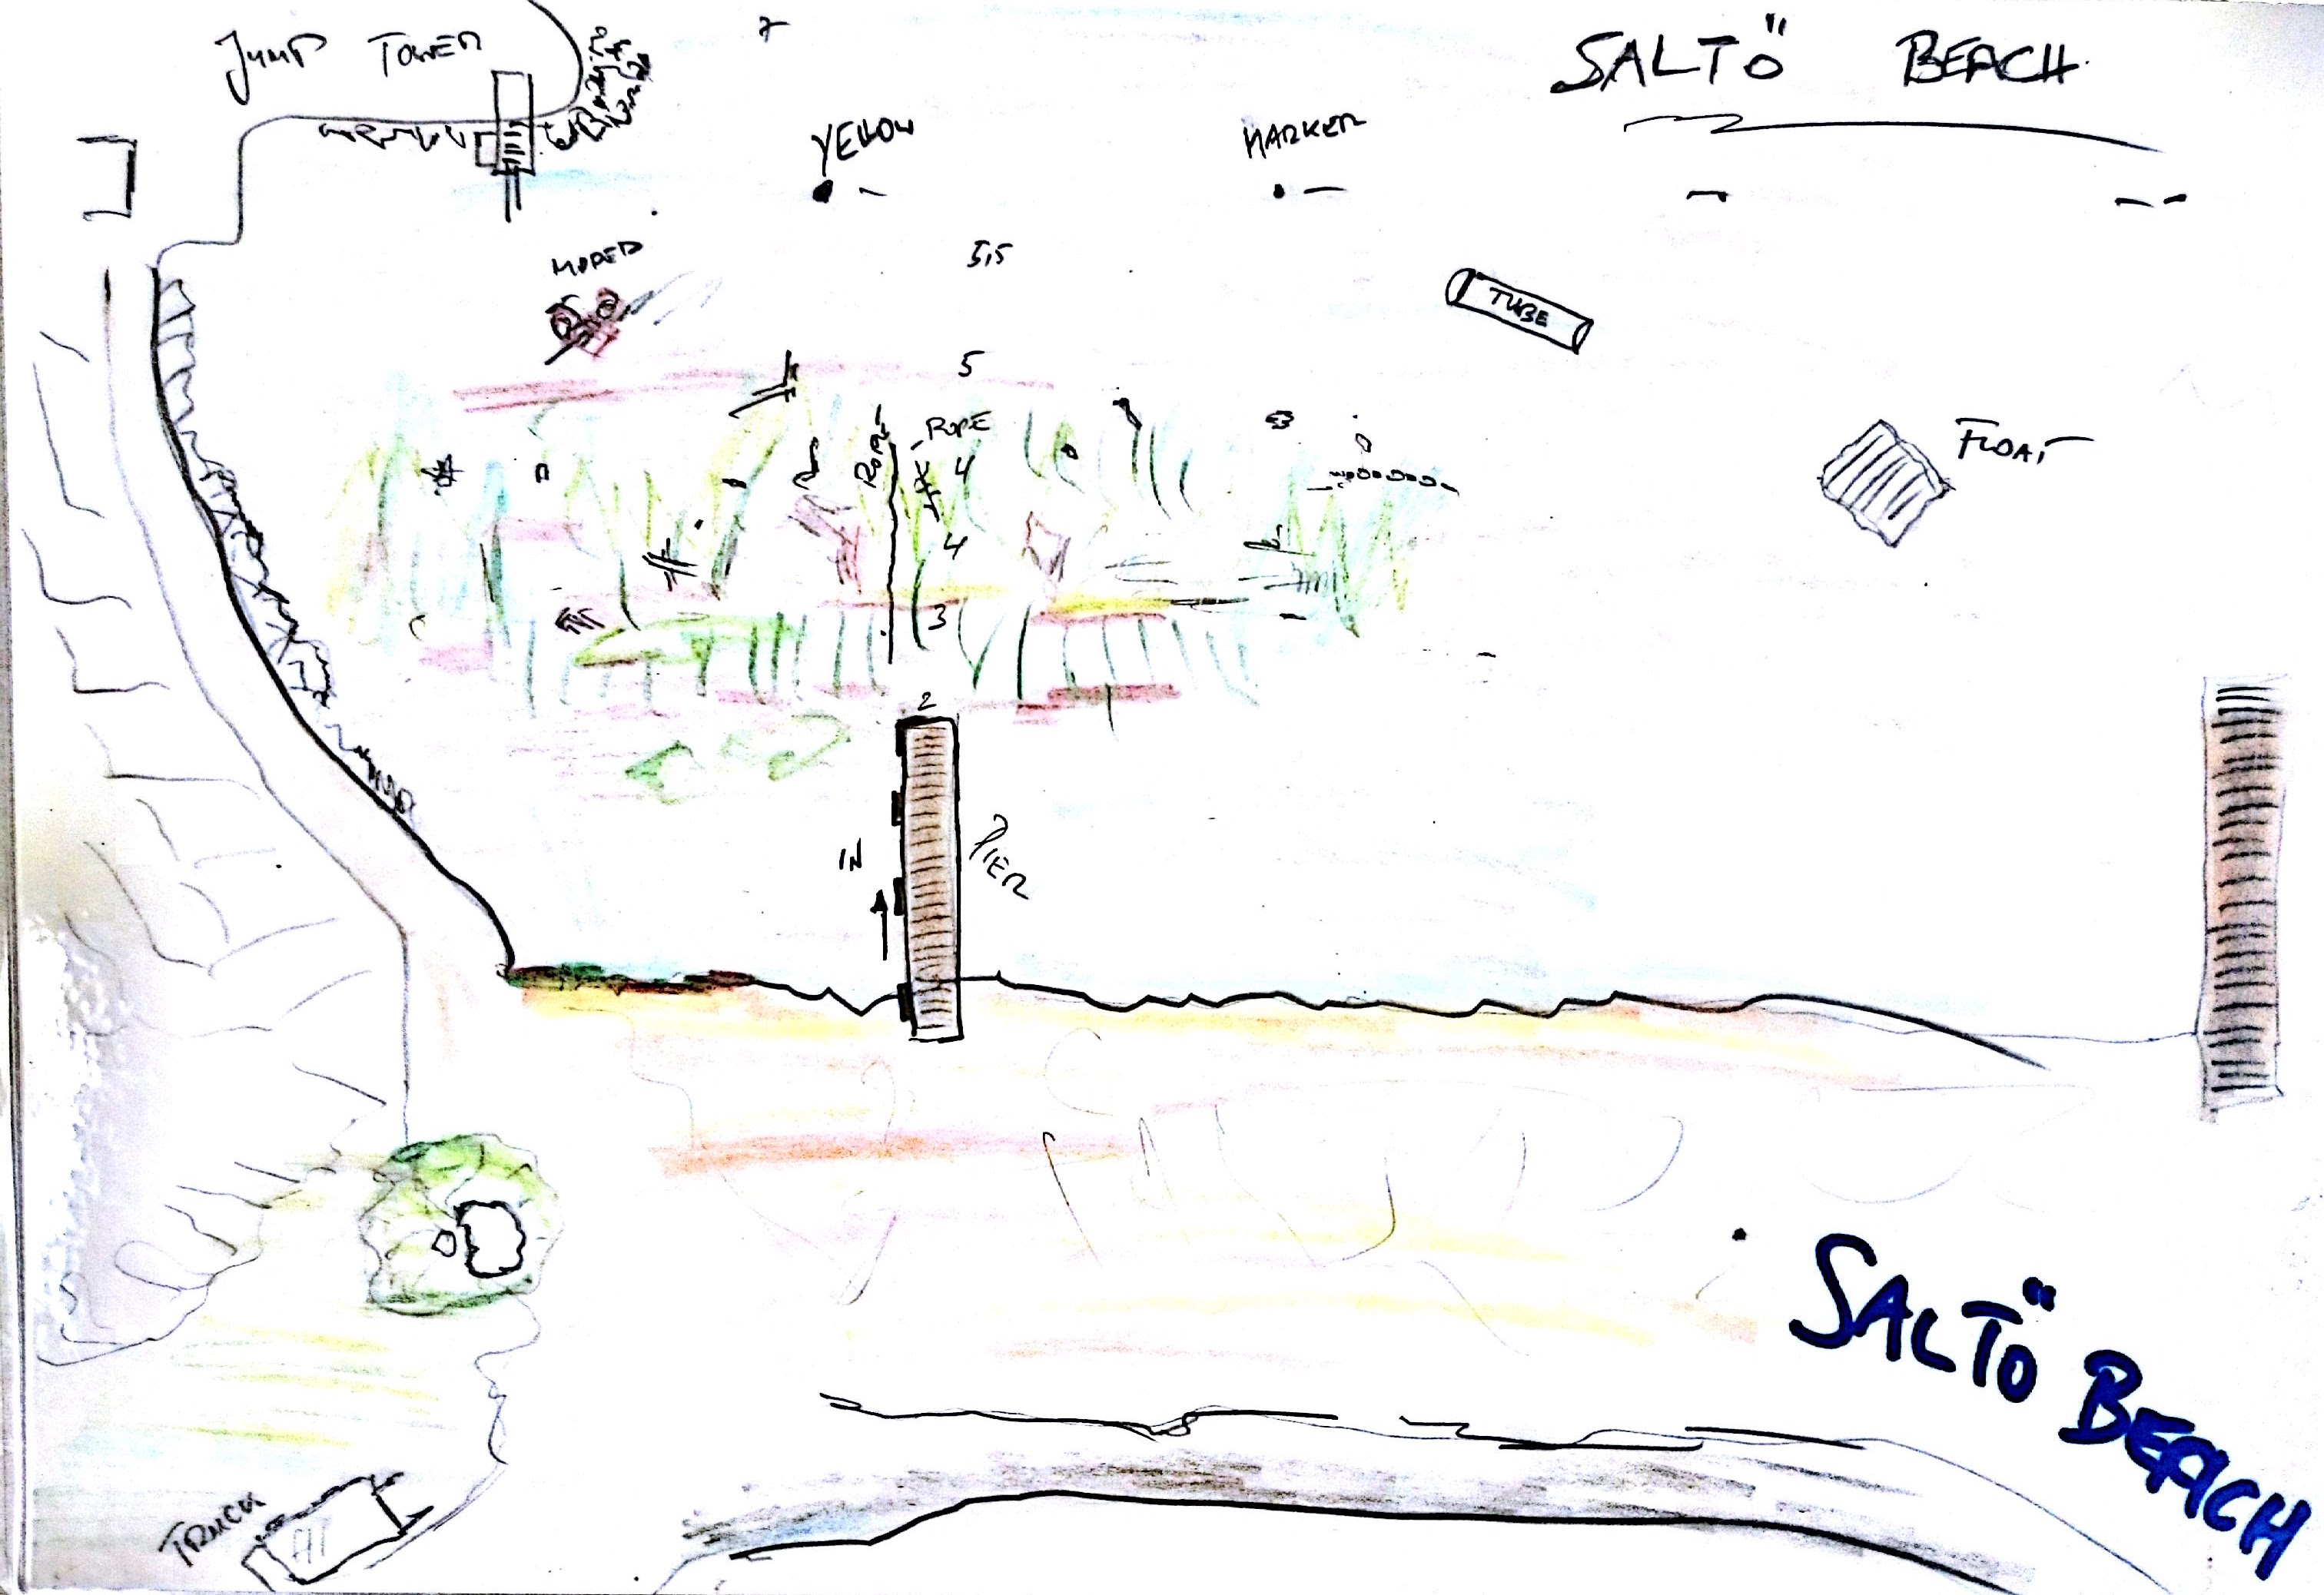 JUMP TOWER
7
SALTÖ BEACH
YELLOW
MARKER
MOPED
5,5
TUBE
5
ROPE
ROPE
4
FLOAT
4
3
2
IN
PIER
SALTÖ BEACH
TRUCK